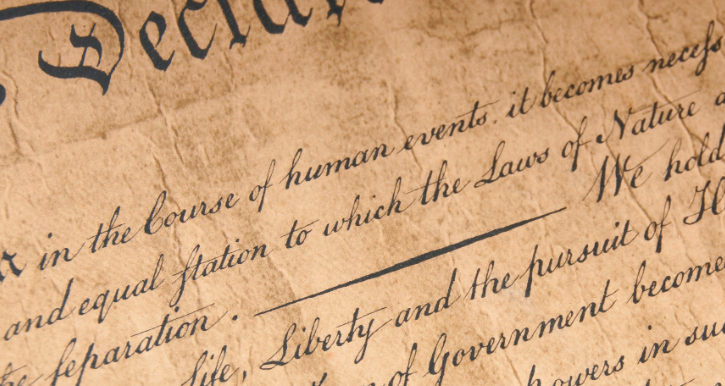 Decla
in the Course of human events. it becomes necess
and equal station to which the Laws of Nature a
separation. We hold
Life, Liberty and the pursuit of H
of Government become
powers in suc